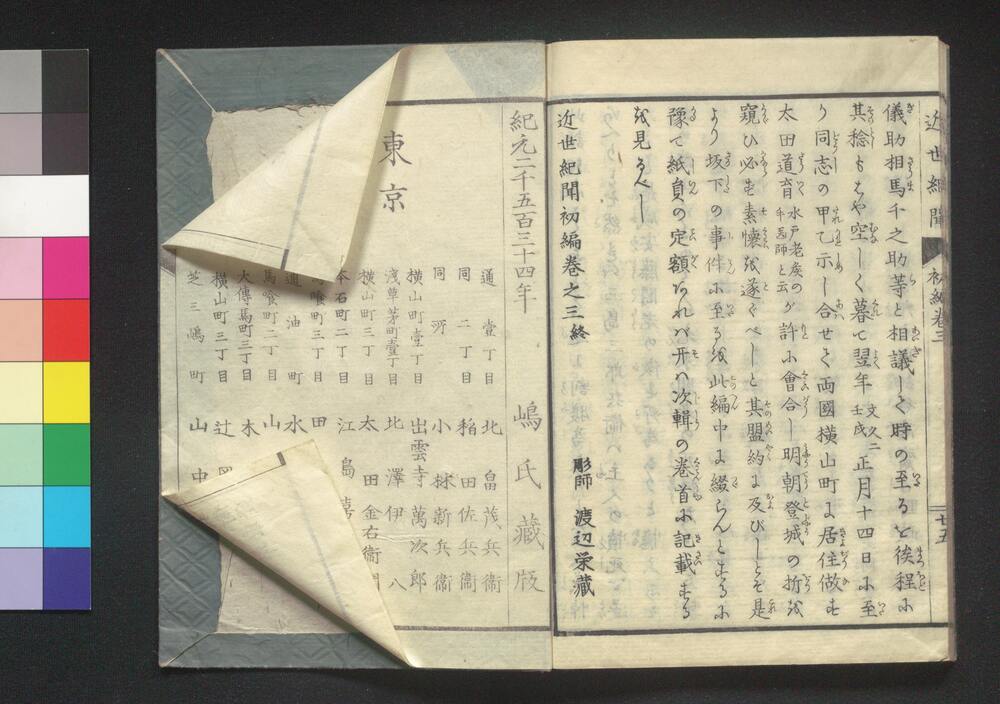 近世紀聞 初編巻三 廿五
儀助相馬千之助等と相議して時の至るを俟程に
其稔もはや空しく暮て翌年文久二壬戌正月十四日に至
り同志の甲乙示し合せて両國横山町に居住做す
太田道育水戸老矦の手医師と云が許に會合し明朝登城の折を
窺ひ必も素懐を遂ぐべしと其盟約に及びしとぞ是
より坂下の事件に至るを此編中に綴らんとするに
豫て紙員の定額あれバ开ハ次輯の巻首に記載する
を見るべし
近世紀聞初編巻之三終
彫師 渡辺栄藏
紀元二千五百三十四年
嶋氏藏版
東京
通 壹丁目 北畠茂兵衞
同 二丁目 稲田佐兵衞
同 所 小林新兵衞
横山町壹丁目 出雲寺萬次郎
浅草茅町壹丁目 北澤伊八
横山町三丁目 太田金右衞門
本石町二丁目 江島喜
喰町三丁目 田
通油町 水
馬喰町二丁目 山
大傳馬町三丁目 木
横山町三丁目 辻岡
芝三嶋町 山中